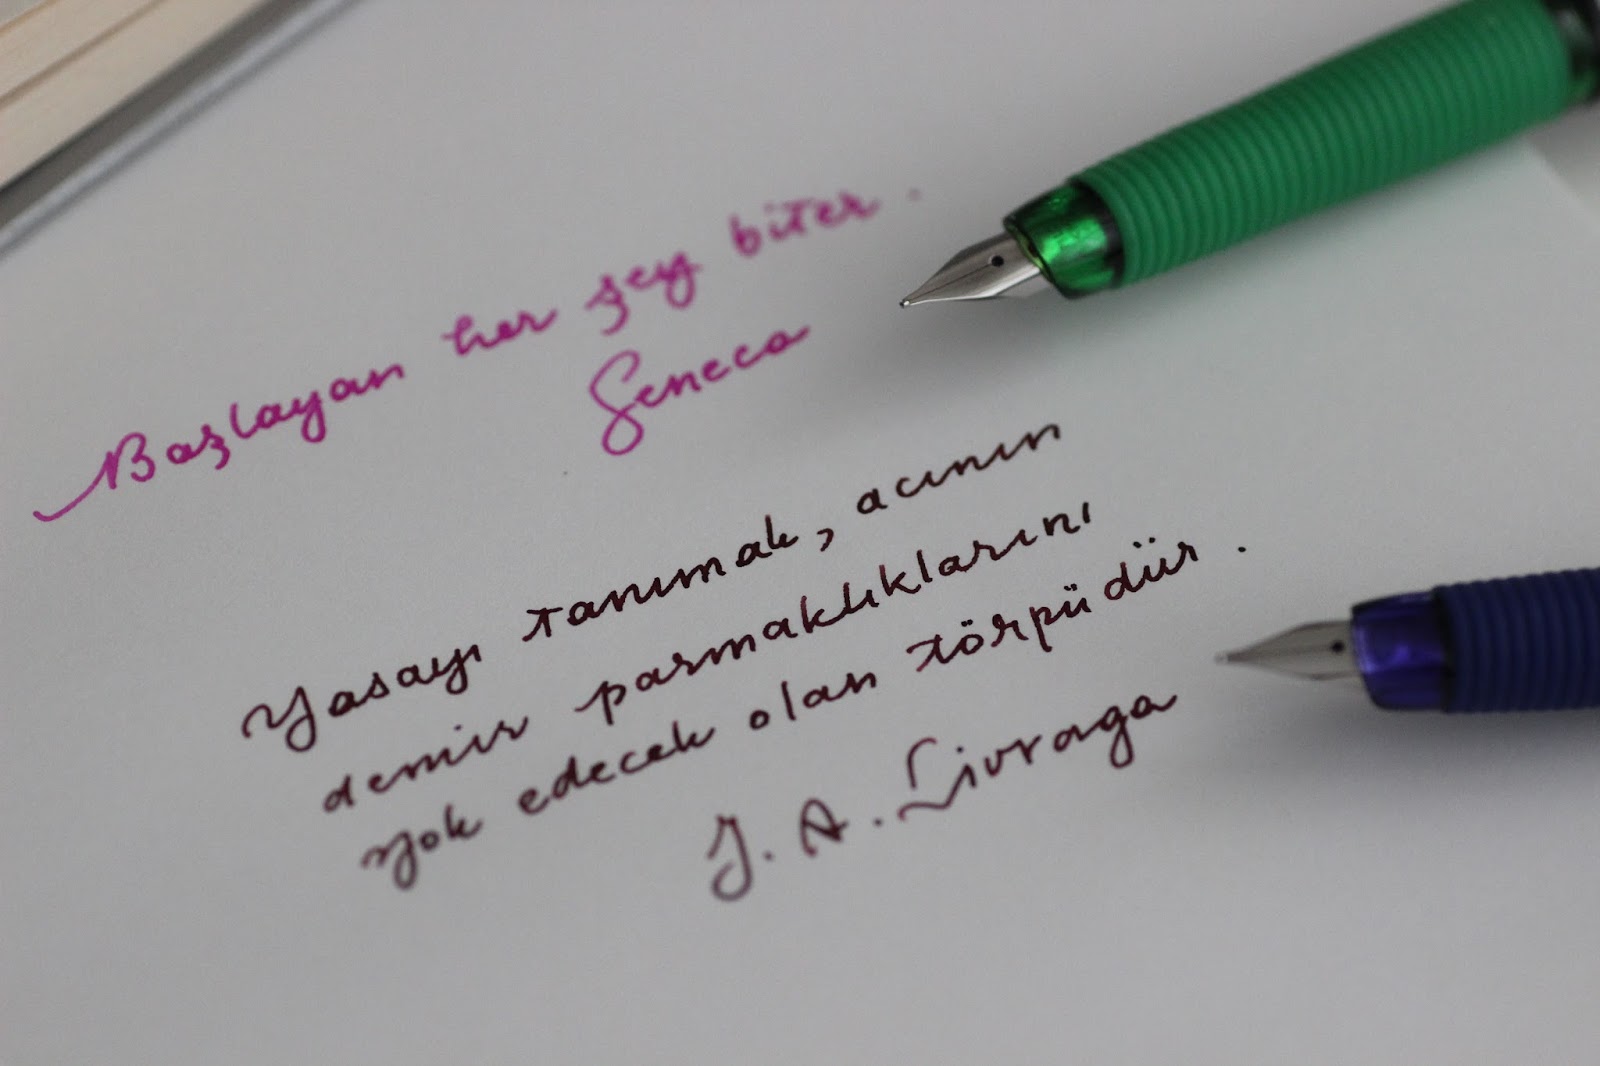 Başlayan her şey biter.
Seneca
Yasayı tanımak, acının
demir parmaklıklarını
yok edecek olan törpüdür.
J. A. Livraga